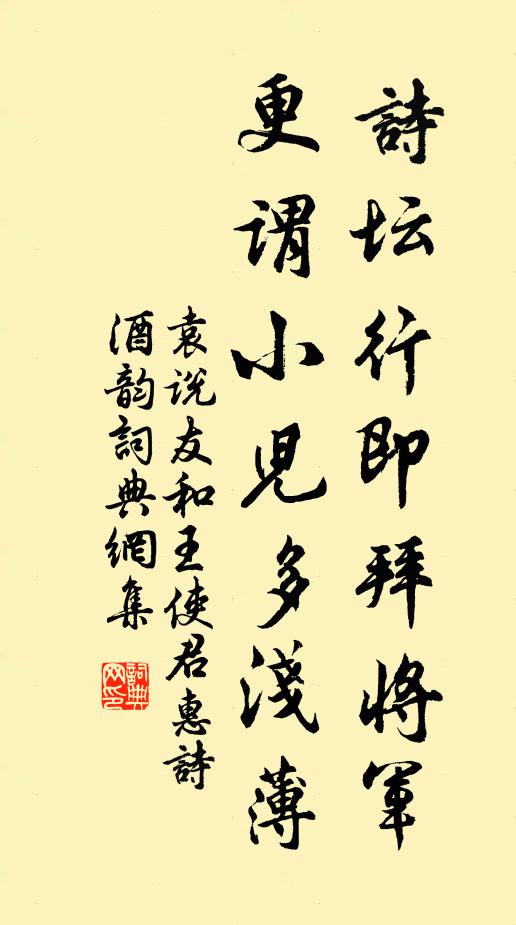 詩坛行即拜將軍
更谓小兒多淺薄
袁说友和王使君惠詩
酒韵詞典網集
詞典网印